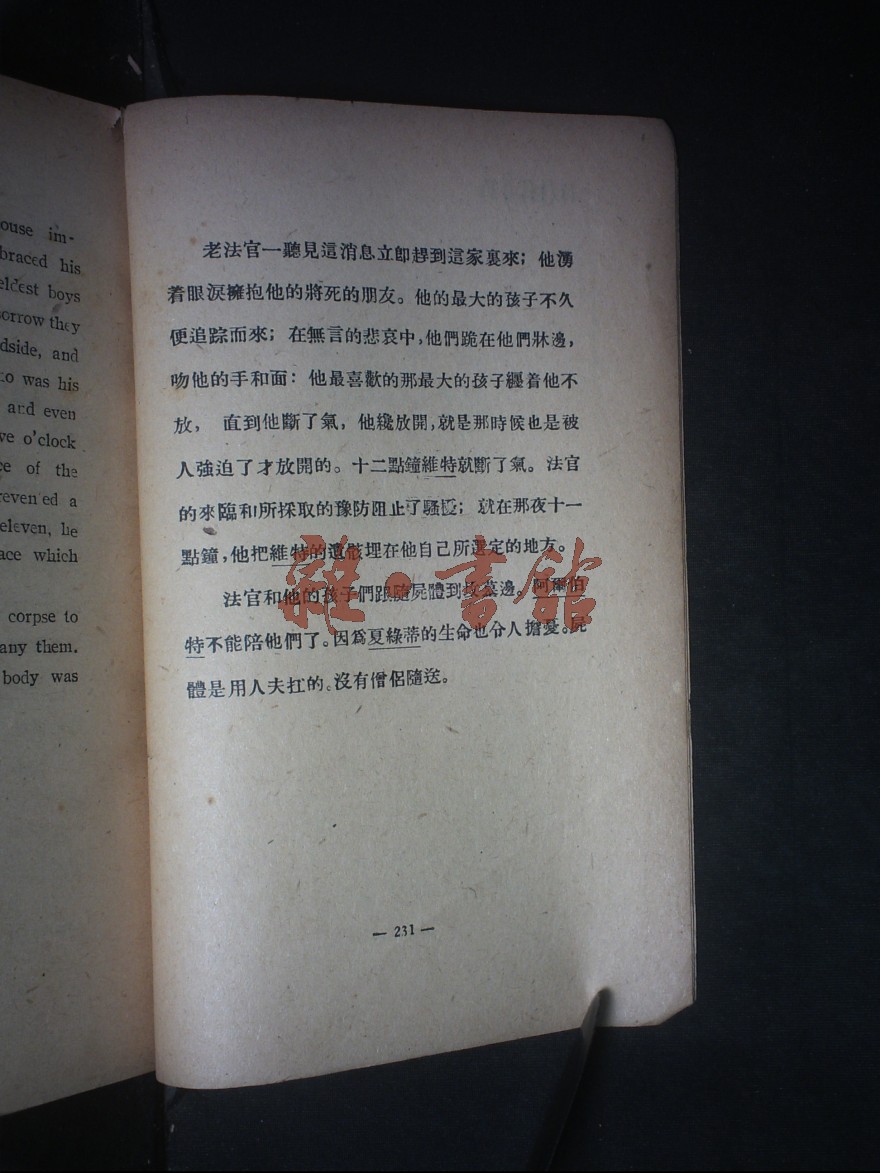 ouse im-
braced his
eldest boys
sorrow they
dside, and
to was his
and even
ve o'clock
ce of the
reven ed a
eleven, he
ace which
corpse to
any them.
body was
老法官一聽見這消息立卽趕到這家裏來；他湧
着眼淚擁抱他的將死的朋友。他的最大的孩子不久
便追踪而來；在無言的悲哀中，他們跪在他們牀邊，
吻他的手和面：他最喜歡的那最大的孩子纒着他不
放，直到他斷了氣，他纔放開，就是那時候也是被
人強迫了才放開的。十二點鐘維特就斷了氣。法官
的來臨和所採取的豫防阻止了騷擾；就在那夜十一
點鐘，他把維特的遺骸埋在他自己所選定的地方。
法官和他的孩子們跟隨屍體到坟墓邊。阿爾伯
特不能陪他們了。因爲夏綠蒂的生命也分人擔憂。屍
體是用人夫扛的。沒有僧侶隨送。
雜·書館
— 231 —